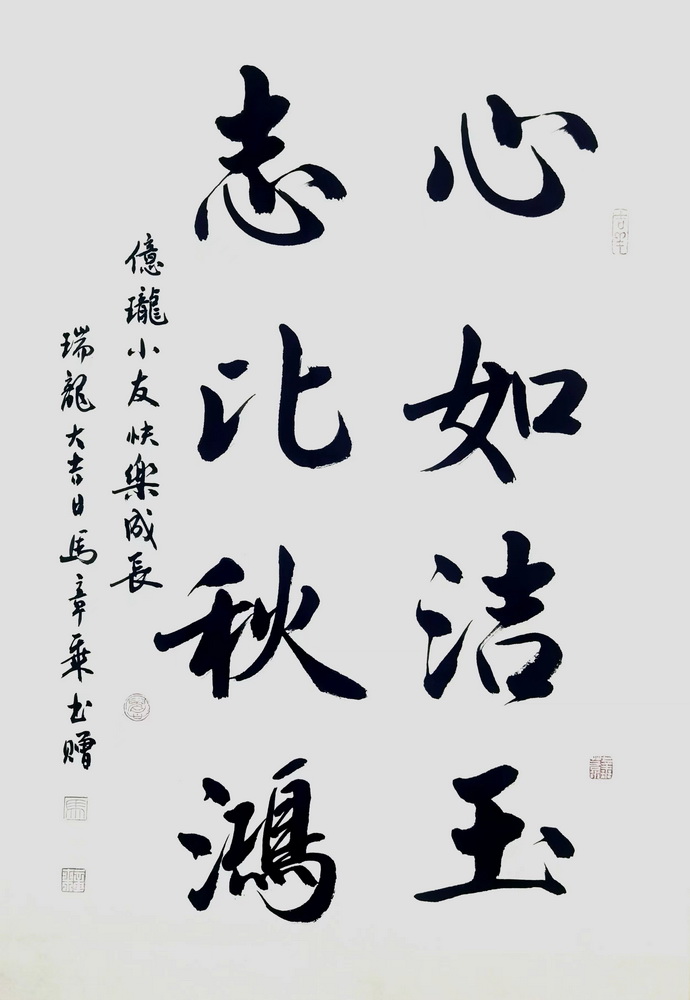 心如洁玉
志比秋鴻
億瓏小友快樂成長
瑞龍大吉日馬章乘书贈